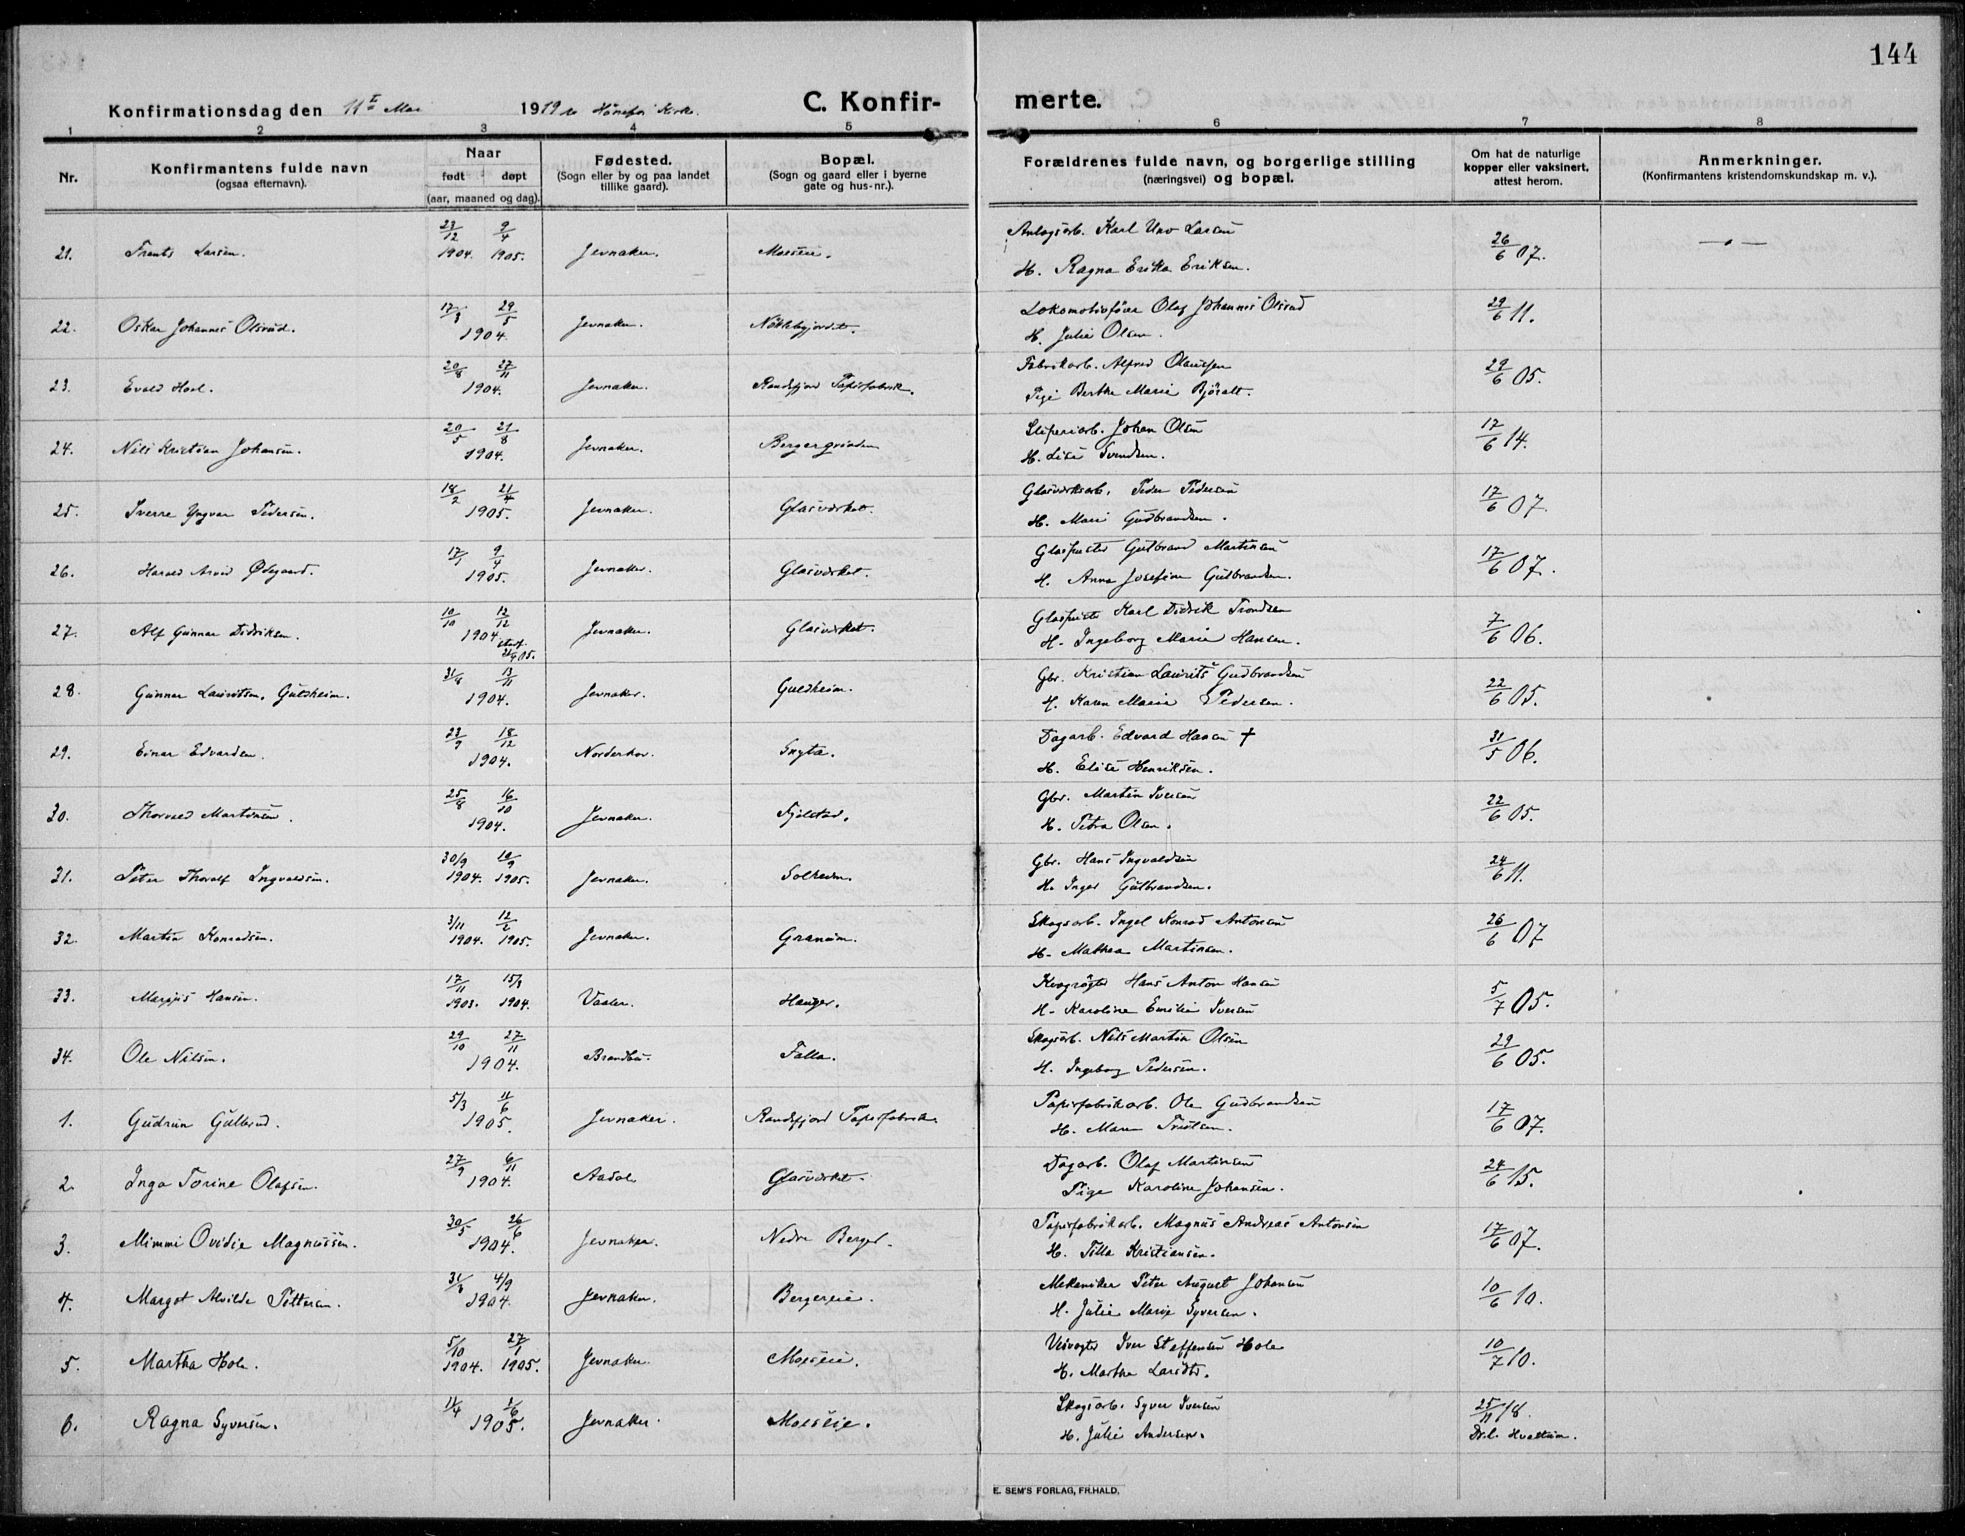 144
Konfirmationsdag den 11te Mai 1919 C. Konfir- merte.
1 2 3 4 5 6 7 8
Nr. Konfirmantens fulde navn (ogsaa efternavn). Naar født døpt (aar, maaned og dag). Fødested. (Sogn eller by og paa landet tillike gaard). Bopæl. (Sogn og gaard eller i byerne gate og hus-nr.). Forældrenes fulde navn, og borgerlige stilling (næringsvei) og bopæl. Om hat de naturlige kopper eller vaksinert, attest herom. Anmerkninger. (Konfirmantens kristendomskundskap m. v.).
21. Frants Larsen. 23/12 1904. 9/4 1905. Jevnaker. Moeseie. Karl Larsen
H. Ragna Erika Eriksen. 26/6 07.
22. Oskar Johannes Olsrud. 17/3 29/5 1904. Jevnaker. Lokomotivfører Olaf Johannes Olsrud
H. Julie Olsen. 29/6 11.
23. Evald Hoel. 20/8 27/11 1904. Jevnaker. Randsfjord Papirfabrik. Fabrikarb. Alfred Olausen
Pige Berthe Marie 29/6 05.
24. Nils Kristian Johansen. 20/5 21/8 1904. Jevnaker. Sliperiarb. Johan Olsen
H. Lise Svendsen. 17/6 14.
25. Sverre Yngvar Pedersen. 18/2 21/4 1905. Jevnaker. Glasværket. Glasværksarb. Peder Pedersen
H. Mari Gudbrandsen. 17/6 07.
26. Harald Arvid Ødegaard. 17/1 9/4 1905. Jevnaker. Glasværket. Glaspuster Gulbrand Martinsen
H. Anna Josefine Gulbrandsen. 17/6 07.
27. Alf Gunnar Didriksen. 10/10 12/12 1904 Jevnaker. Glasværket. Glaspuster Karl Didrik Trondsen
H. Ingeborg Marie Hansen. 7/6 06.
28. Gunnar Lauritsen, Guldheim. 31/8 13/11 1904. Jevnaker. Guldheim. Gbr. Kristian Laurits Gudbrandsen
H. Karen Marie Pedersen. 22/6 05.
29. Einar Edvardsen. 23/9 18/12 1904. Norderhov. Snyta. Dagarb. Edvard Hansen †
H. Elise Henriksen. 31/5 06.
30. Thorvald Martinsen. 25/8 16/10 1904. Jevnaker. Fjelstad. Gbr. Martin Iversen
H. Petra Olsen. 22/6 05.
31. Peter Thoralf Ingvaldsen. 30/9 1904. 10/9 1905. Jevnaker. Solheim. Gbr. Hans Ingvaldsen
H. Inger Gulbrandsen. 24/6 11.
32. Martin Konradsen. 3/11 1904. 1905. Jevnaker. Granum. Skogsarb. Ingel Konrad Antonsen
H. Mathea Martinsen. 26/6 07
33. Margus Hansen. 17/11 1903. 15/3 1904. Vaaler. Hauger. Kvægrøgter Hans Anton Hansen
H. Karoline Emilie Iversen 5/7 05.
34. Ole Nilsen. 29/10 27/11 1904. Brandbu. Falla. Skogsarb. Nils Martin Olsen
H. Ingeborg Pedersen. 29/6 05.
1. Gudrun Gulbrud. 5/3 11/6 1905. Jevnaker. Randsfjord Papirfabrik. Papirfabrikarb. Ole Gudbrandsen
H. Maren 17/6 07.
2. Inga Torine Olafsen. 27/9 6/11 1904. Aadal. Glasværket. Dagarb. Olaf Martinsen
Pige Karoline Johansen. 24/6 15.
3. Mimmi Ovidie Magnussen. 30/5 26/6 1904. Jevnaker. Nedre Berger. Papirfabrikarb. Magnus Andreas Antonsen
H. Tilla Kristiansen. 17/6 07.
4. Margot Alvilde Pettersen. 4/9 1904. Jevnaker. Bergereie. Mekaniker Peter August Johansen
H. Julie Marie Syversen. 10/6 10.
5. Martha Hole. 5/10 1904. 27/1 1905. Jevnaker. Moeseie. Veivogter Iver Steffensen Hole
H. Marthe Larsdtr. 10/7 10.
6. Ragna Syversen. 11/4 1905. Jevnaker. Moeseie. Skogsarb. Syver Iversen
H. Julie Andersen. 25/11 18.
E. SEM'S FORLAG, FR.HALD.